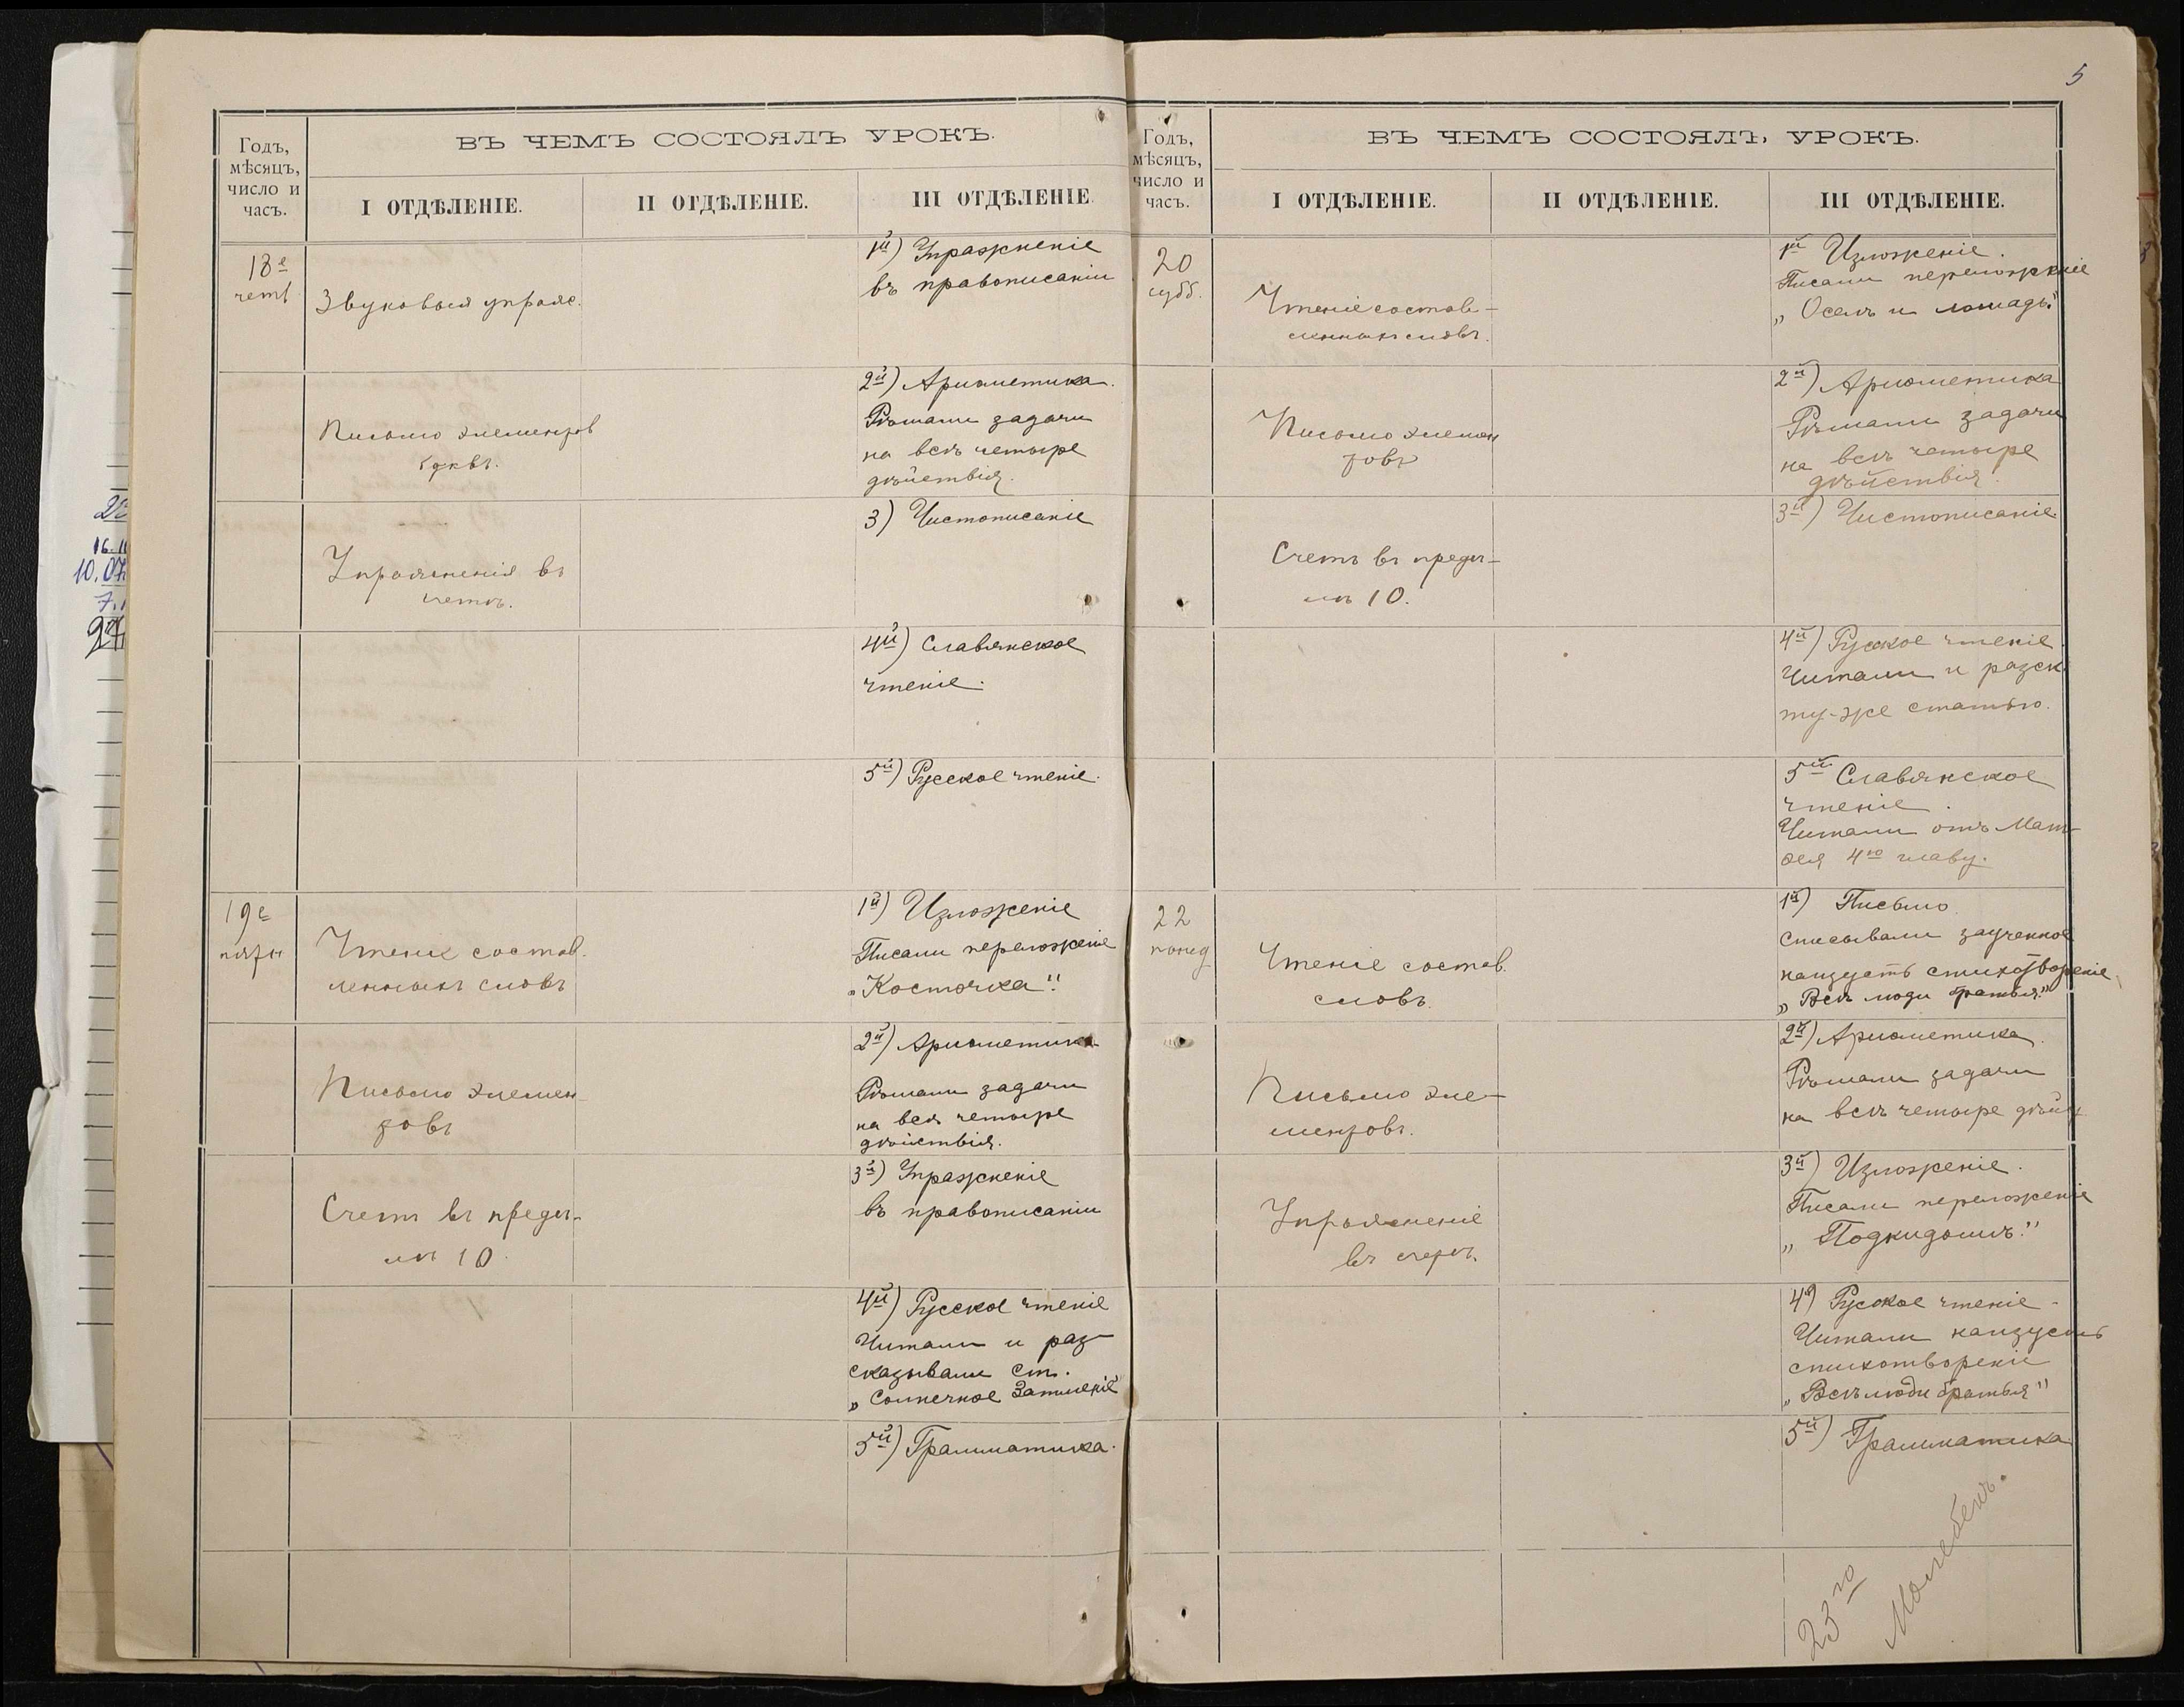 5
Годъ,
мѣсяцъ,
число и
часъ.
ВЪ ЧЕМЪ СОСТОЯЛЪ УРОКЪ.
I ОТДѢЛЕНІЕ.
II ОТДѢЛЕНІЕ.
III ОТДѢЛЕНІЕ.
18е
четв
Звуковыя упраж.
1й) Упражненіе
въ правописаніи
Письмо элементов
буквъ.
2й) Ариѳметика.
Рѣшали задачи
на всѣ четыре
дѣйствія.
Упражненія въ
счетѣ.
3) Чистописаніе
4й) Славянское
чтеніе.
5й) Русское чтеніе.
19е
пятн
Чтеніе состав.
ленныхъ словъ
1й) Изложеніе
Писали переложеніе
„Косточка".
Письмо элемен
товъ
2й) Ариѳметика
Рѣшали задачи
на всѣ четыре
дѣйствія.
Счетъ въ предѣ-
лѣ 10.
3й) Упражненіе
въ правописаніи
4й) Русское чтеніе
Читали и раз-
сказывали ст.
„Солнечное Затменіе"
5й) Грамматика.
Годъ,
мѣсяцъ,
число и
часъ.
ВЪ ЧЕМЪ СОСТОЯЛЪ УРОКЪ.
I ОТДѢЛЕНІЕ.
II ОТДѢЛЕНІЕ.
III ОТДѢЛЕНІЕ.
20
субб.
Чтеніе состав-
ленныхъ словъ.
1й Изложеніе.
Писали переложеніе
„Оселъ и лошадь"
Письмо элемен
товъ
2й) Ариѳметика
Рѣшали задачи
на всѣ четыре
дѣйствія.
Счетъ въ предѣ-
лѣ 10.
3й) Чистописаніе.
4й) Русское чтеніе.
Читали и разск.
ту-же статью.
5й Славянское
чтеніе.
Читали отъ Мат-
ѳея 4ю главу.
22
понед
Чтеніе состав.
словъ.
1й) Письмо.
Списывали заученное
наизусть стихотвореніе
„Всѣ люди братья."
Письмо эле-
ментовъ.
2й) Ариѳметика.
Рѣшали задачи
на всѣ четыре дѣйс
Упражненіе
въ счетѣ.
3й) Изложеніе.
Писали переложеніе
„Подкидышъ."
4й) Русское чтеніе -
Читали наизусть
стихотвореніе
„Всѣ люди братья"
5й) Грамматика
23го
Молебенъ.